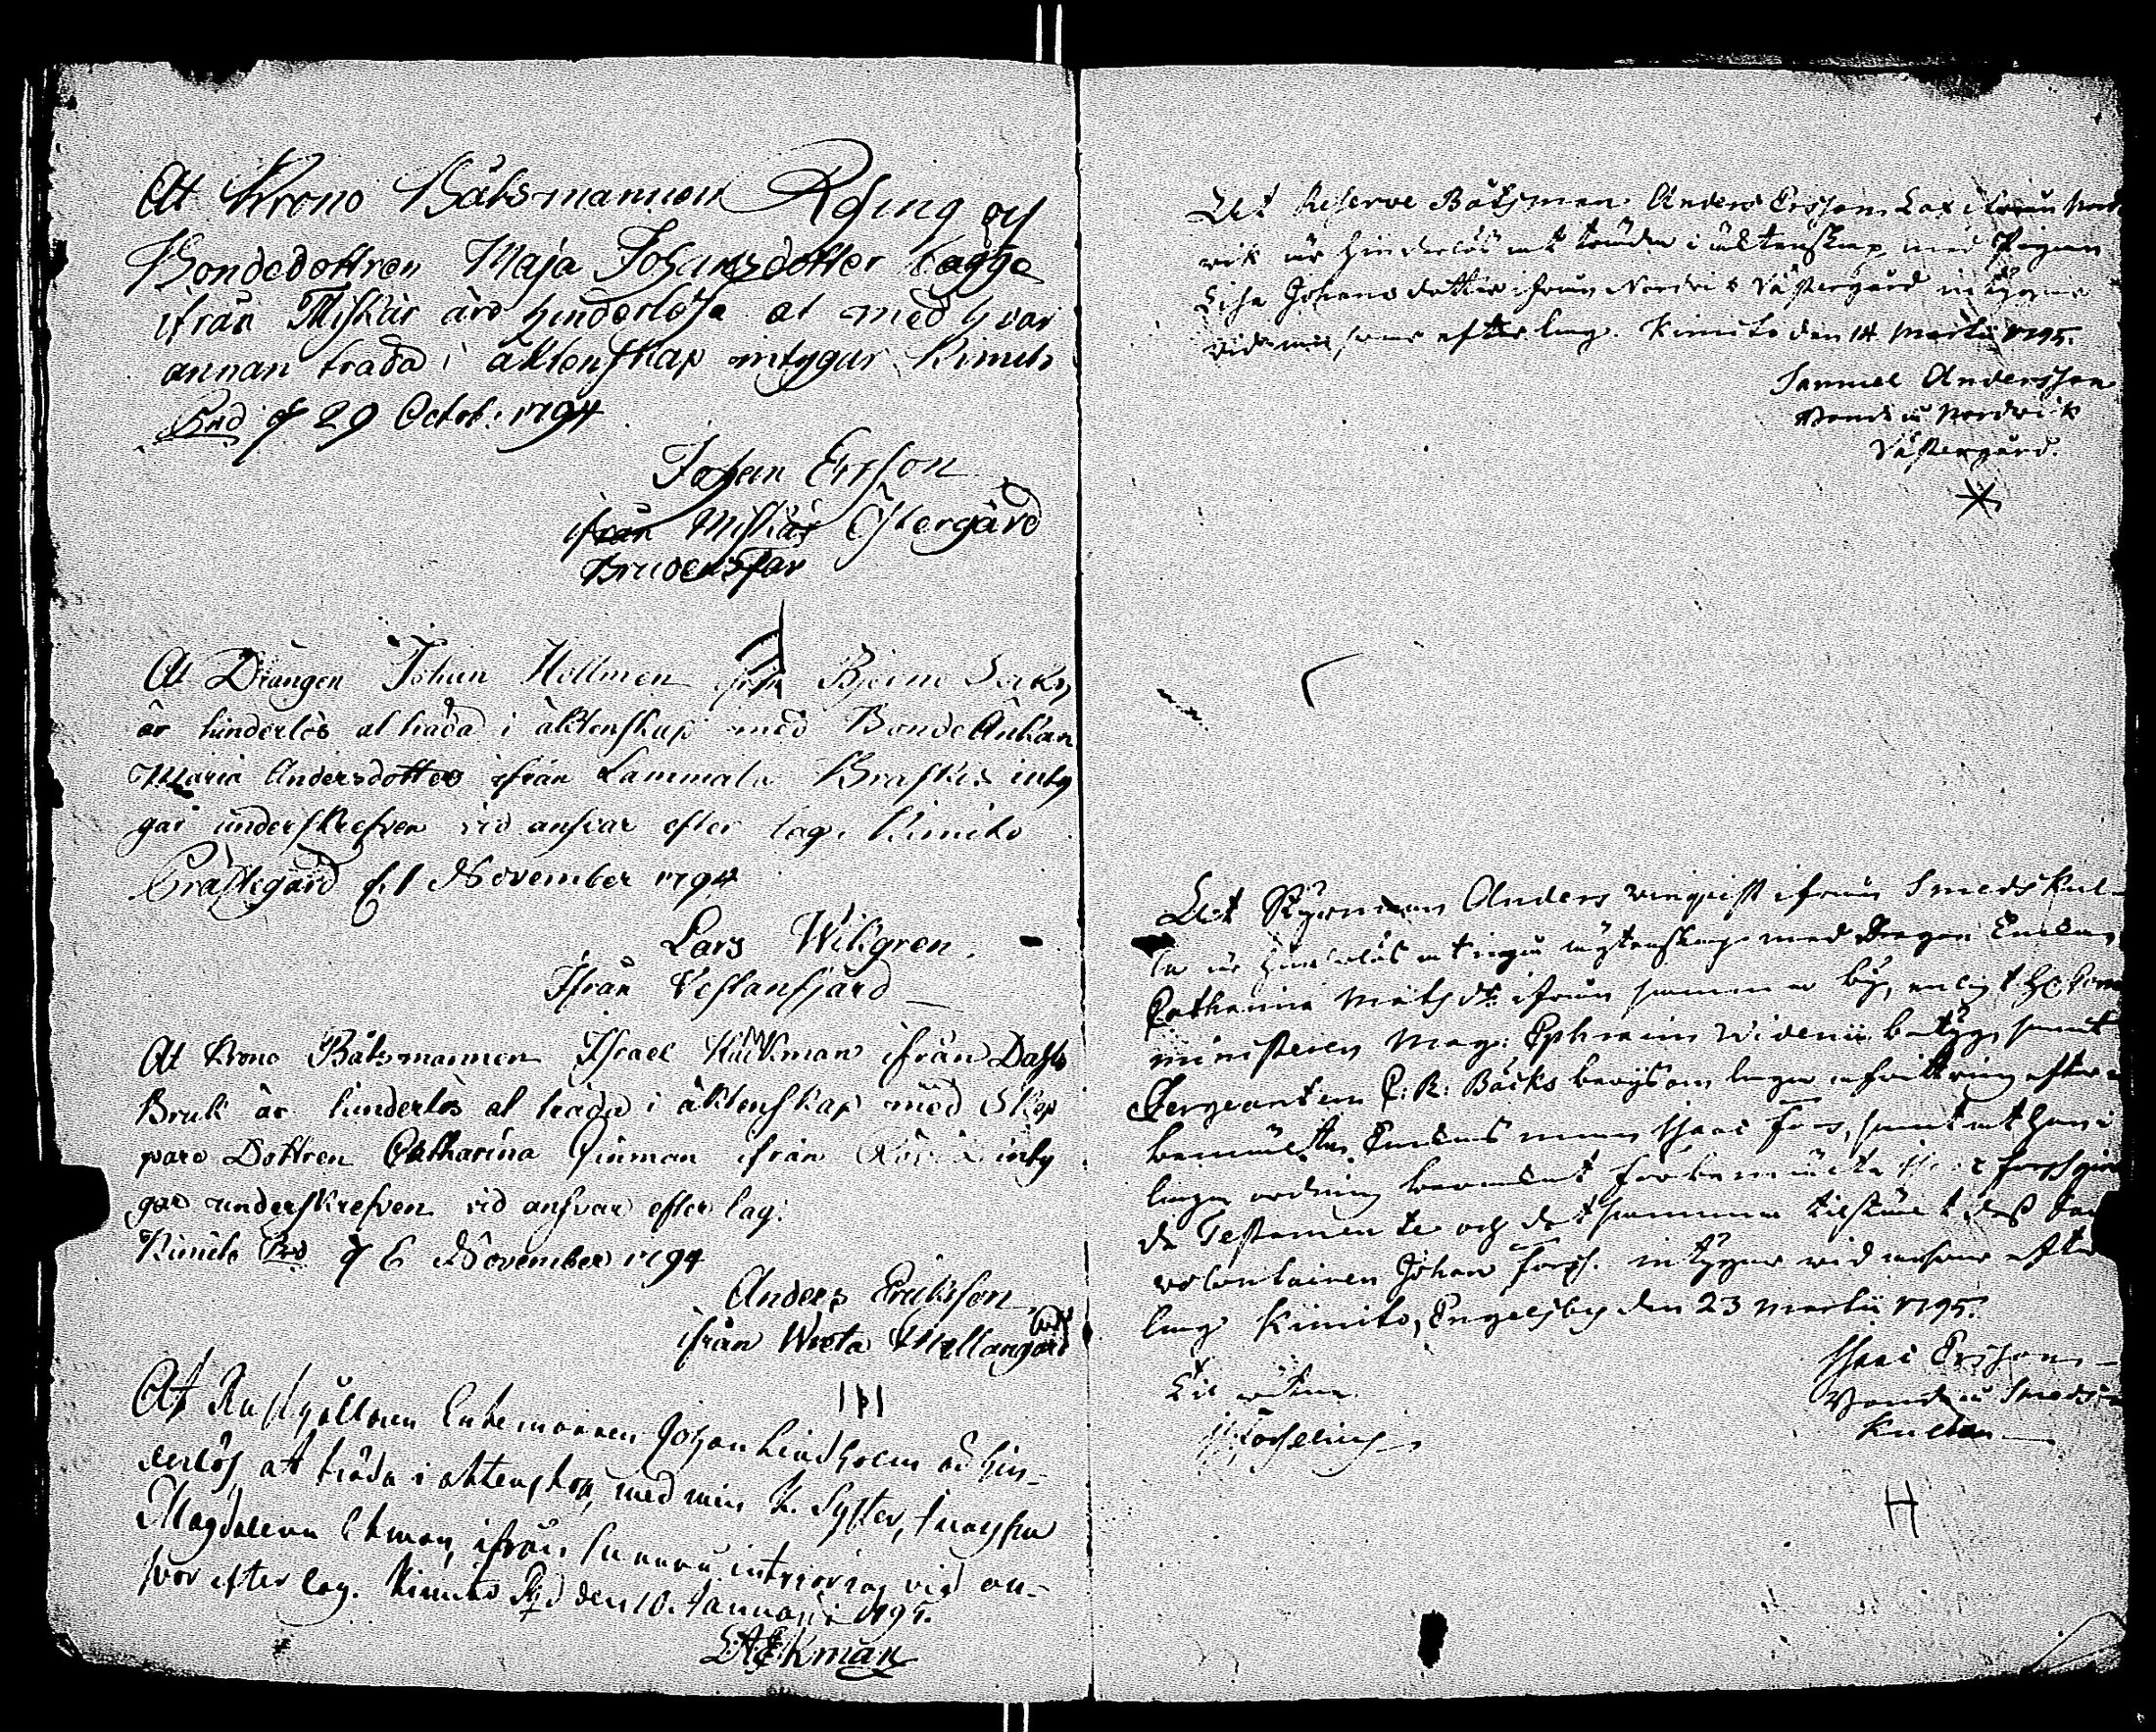 At Krono Båtsmannen Rfing och
Bondedottren Maja Johansdotter bagge
ifrån Miskär äro hinderlösa at med hvar
annan träda i äktenskap intygar Kimito
Prd d 29 Octob. 1794
Johan Ersson
ifrån Miskär Östergård
Brudens Far
At Drängen Johan Hellmen från Bjerno Sokn
är hinderlös at träda i äktenskap med BondeÄnkan
Maria Andersdotter ifrån Lammala Braskis inty
gar underskrefven vid ansvar efter lag. Kimito
Prästegård d. 1 November 1794
Lars Wikgren
Ifrån Vestanfjärd
At Krono Båtsmannen Israel ifrån Dahls
Bruk är hinderlös at träda i äktenskap med Skep
pare Dottren Catharina Finman ifrån inty
gar underskrefven vid ansvar efter lag.
Kimito Prd d 6 November 1794
Anders Eriksson
ifrån Wreta Mellangård
At Rusthållaren Enkemannen Johan Lindholm är hin-
derlös at träda i äktenskap med min K. Syster, Jungfru
Magdalena Ekman, ifrån intygar jag vid an-
svar efter lag. Kimito Prd den 10. Januari 1795.
Ekman
Det Reserve Båtsman Anders Ersson Lax ifrån Nord
vik är hinderlös att träda i äktenskap med Pigan
Lisa Johansdotter ifrån Nordvik Västergård intygas
vid ansvar efter lag. Kimito den 14 Martii 1795.
Samuel Andersson
Bonde i Nordvik
Västergård.
Det Styrman Anders ifrån Smedskul-
la är hinderlös at ingå ägtenskap med Enkan
Catharina Matsdr ifrån samma by, enligt
ministern Mag: Ephraim Widenii betyg, samt
Sergeanten C: R: Bäcks bevis om laga afvittring efter
bemälte Enkas man Isaac Fors, samt at han i
laga ordning
de Testamente och det samma tilstält des
volontairen Johan Forss. intygar vid ansvar efter
lag Kimito, Engelsby den 23 Martii 1795.
Isaac Ersson
Bonde i Smeds-
kullan